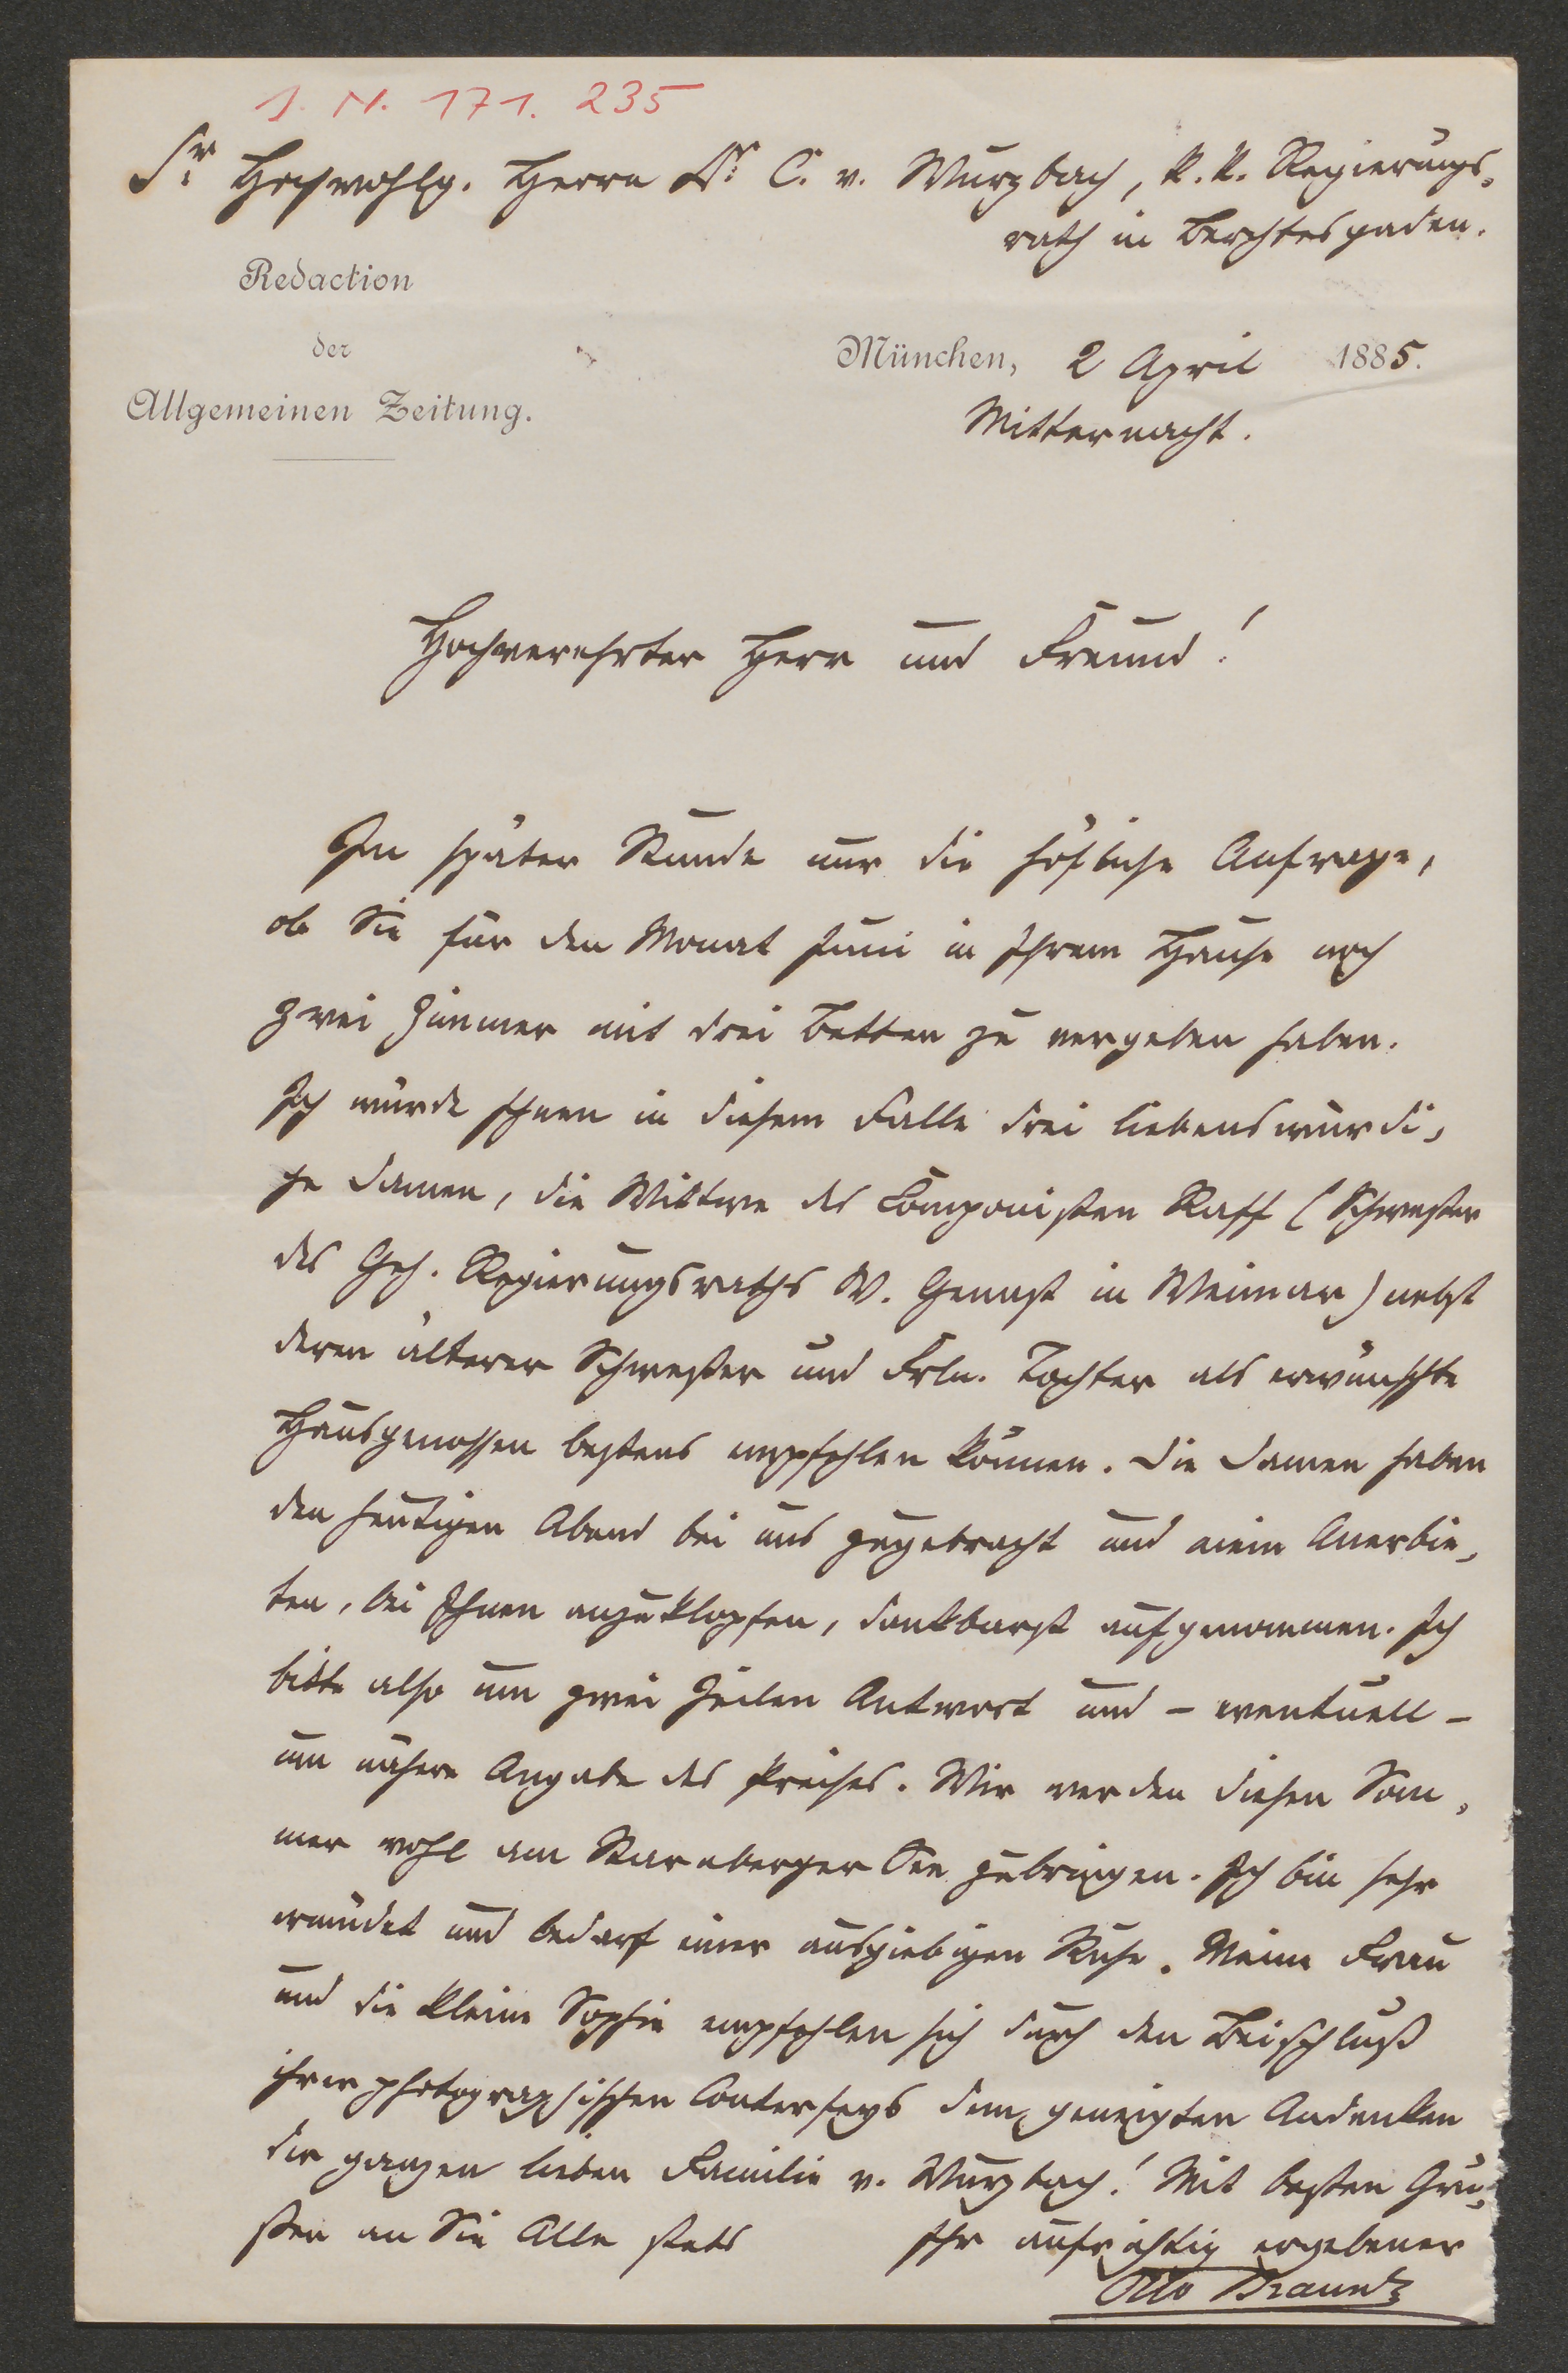 J. N. 171. 235
Sr Hochwohlg. Herrn Dr C. v. Wurzbach, k. k. Regierungs-
rath in Berchtesgaden.
Redaction
der
Allgemeinen Zeitung.
München, 2 April 1885.
Mitternacht.
Hochverehrter Herr und Freund!
In später Stunde nur die höfliche Anfrage,
ob Sie für den Monat Juni in Ihrem Hause noch
zwei Zimmer mit drei Betten zu vergeben haben.
Ich würde Ihnen in diesem Falle drei liebenswürdi-
ge Damen, die Wittwe des Componisten Raff (Schwester
des Geh. Regierungsraths W. Genast in Weimar) nebst
deren älterer Schwester und Frln. Tochter als erwünschte
Hausgenossen bestens empfehlen können. Die Damen haben
den heutigen Abend bei uns zugebracht und mein Anerbie-
ten, bei Ihnen anzuklopfen, dankbarst aufgenommen. Ich
bitte also um zwei Zeilen Antwort und – eventuell –
um nähere Angabe des Preises. Wir werden diesen Som-
mer wohl am Starnberger See zubringen. Ich bin sehr
ermüdet und bedarf einer ausgiebigen Ruhe. Meine Frau
und die kleine Sophie empfehlen sich durch den Beischluß
ihrer photographischen Conterfeys dem geneigten Andenken
der ganzen lieben Familie v. Wurzbach! Mit besten Grü-
ßen an Sie Alle stets Ihr aufrichtig ergebener
Otto Braun